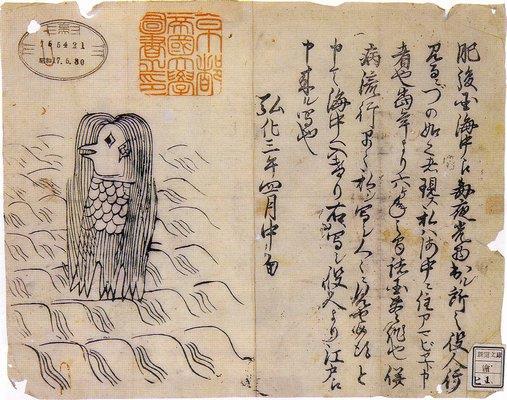 肥後国海中え毎夜光物出ル所之役人行
見るニづの如之者現ス私ハ海中ニ住アマビヱト申
者也当年より六ヶ年之間諸国豊作也併
病流行早々私ヲ写シ人々ニ見せ候得と
申て海中へ入けり右写シ役人より江戸え
申来ル写也
弘化三年四月中旬
京都
帝國大學
圖書之印
昭和17.5.30
新聞文庫